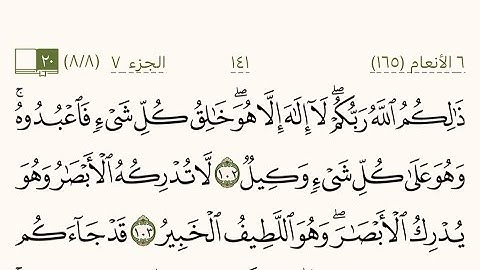 ٦ الأنعام (١٦٥) ١٤١ الجزء ٧ (٨/٨) ٢٠
ذَٰلِكُمُ ٱللَّهُ رَبُّكُمْۖ لَآ إِلَٰهَ إِلَّا هُوَۖ خَٰلِقُ كُلِّ شَىْءٍ فَٱعْبُدُوهُۚ
وَهُوَ عَلَىٰ كُلِّ شَىْءٍ وَكِيلٌ ١٠٢ لَّا تُدْرِكُهُ ٱلْأَبْصَٰرُ وَهُوَ
يُدْرِكُ ٱلْأَبْصَٰرَۖ وَهُوَ ٱللَّطِيفُ ٱلْخَبِيرُ ١٠٣ قَدْ جَآءَكُم